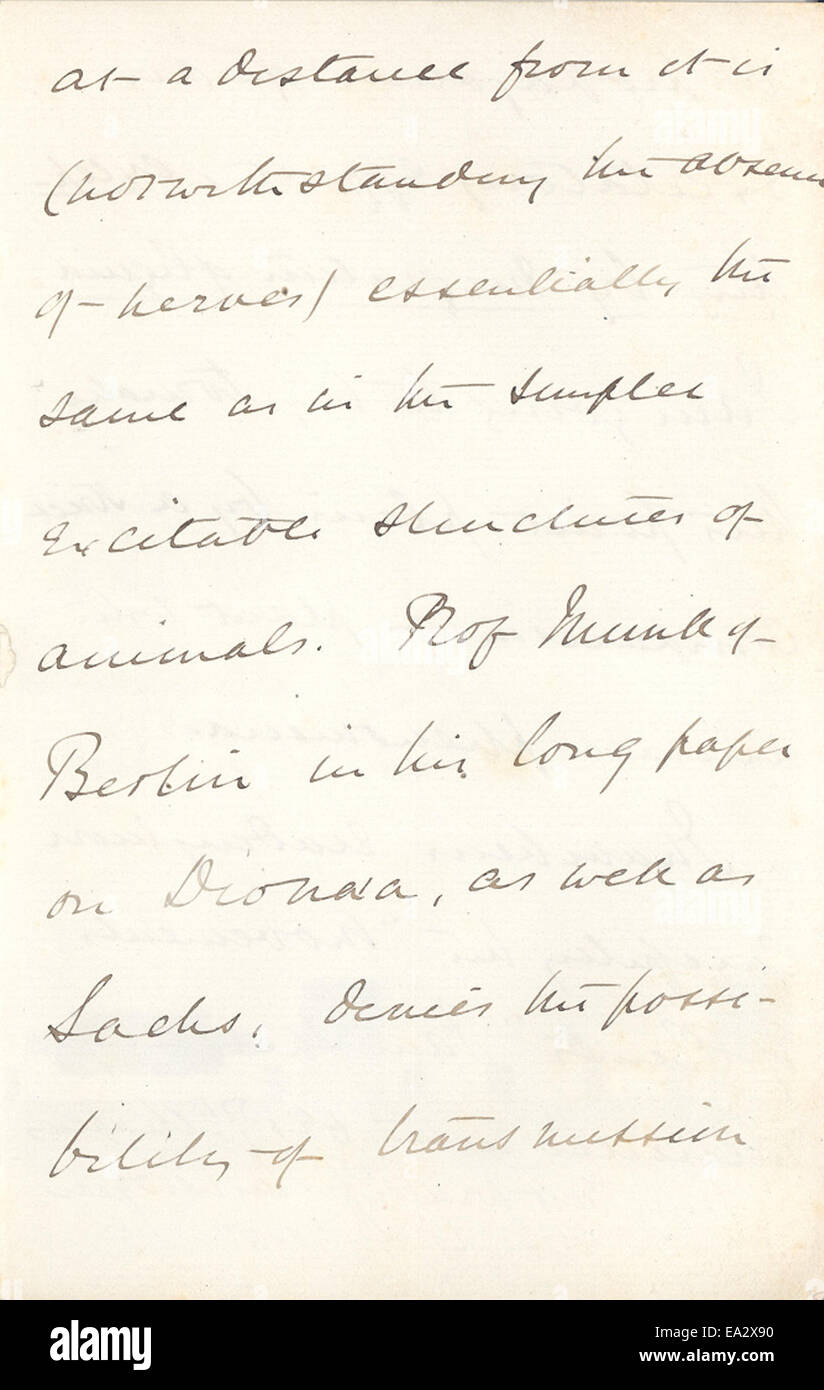 at a distance from it is
(notwithstanding the absence
of nerves) essentially the
same as in the simpler
excitable structures of
animals. Prof Munk of
Berlin in his long paper
on Dionæa, as well as
Sachs, denies the possi-
bility of transmission
alamy
Image ID: EA2X90
www.alamy.com